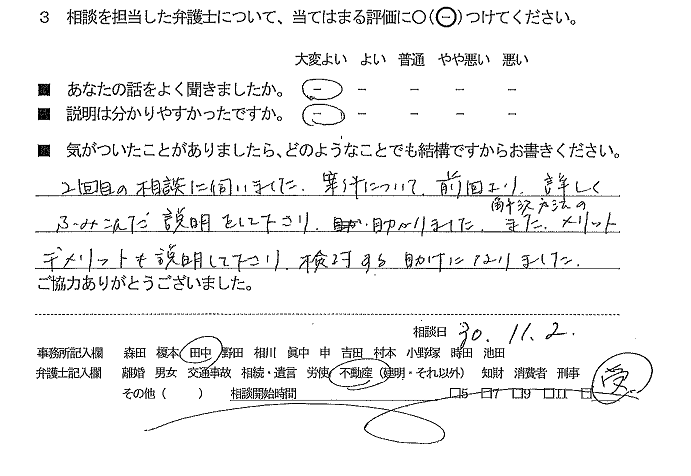 3 相談を担当した弁護士について、当てはまる評価に○(⊖)つけてください。
大変よい よい 普通 やや悪い 悪い
■ あなたの話をよく聞きましたか。 － － － － －
■ 説明は分かりやすかったですか。 － － － － －
■ 気がついたことがありましたら、どのようなことでも結構ですからお書きください。
2回目の相談に伺いました。案件について、前回より、詳しく
ふみこんだ説明をして下さり、助かりました。また、解決方法のメリット
デメリットも説明して下さり、検討する助けになりました。
ご協力ありがとうございました。
相談日 30.11.2.
事務所記入欄 森田 榎本 田中 野田 相川 眞中 申 吉田 村本 小野塚 時田 池田
弁護士記入欄 離婚 男女 交通事故 相続・遺言 労使 不動産(建明・それ以外) 知財 消費者 刑事
その他( ) 相談開始時間 □5 □7 □9 □11 □
受